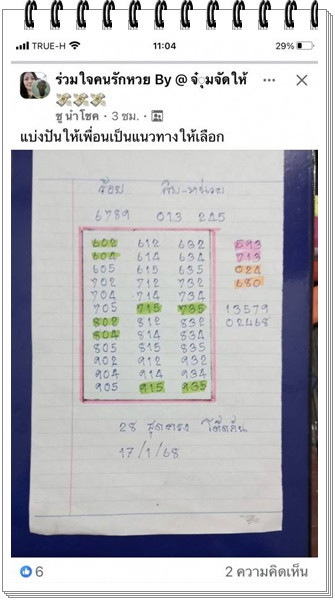 TRUE-H 11:04 29%
ร่วมใจคนรักหวย By @ จํุ่มจัดให้ ...
ชู นำ โชค · 3 ชม.
แบ่งปันให้เพื่อนเป็นแนวทางให้เลือก
ร้อย สิบ-หน่วย
6789 013 245
602 612 632 593
604 614 634 713
605 615 635 024
702 712 732 680
704 714 734
705 715 735 13579
802 812 832 02468
804 814 834
805 815 835
902 912 932
904 914 934
905 915 935
28 ชุดตรง
17/1/68
6 2 ความคิดเห็น